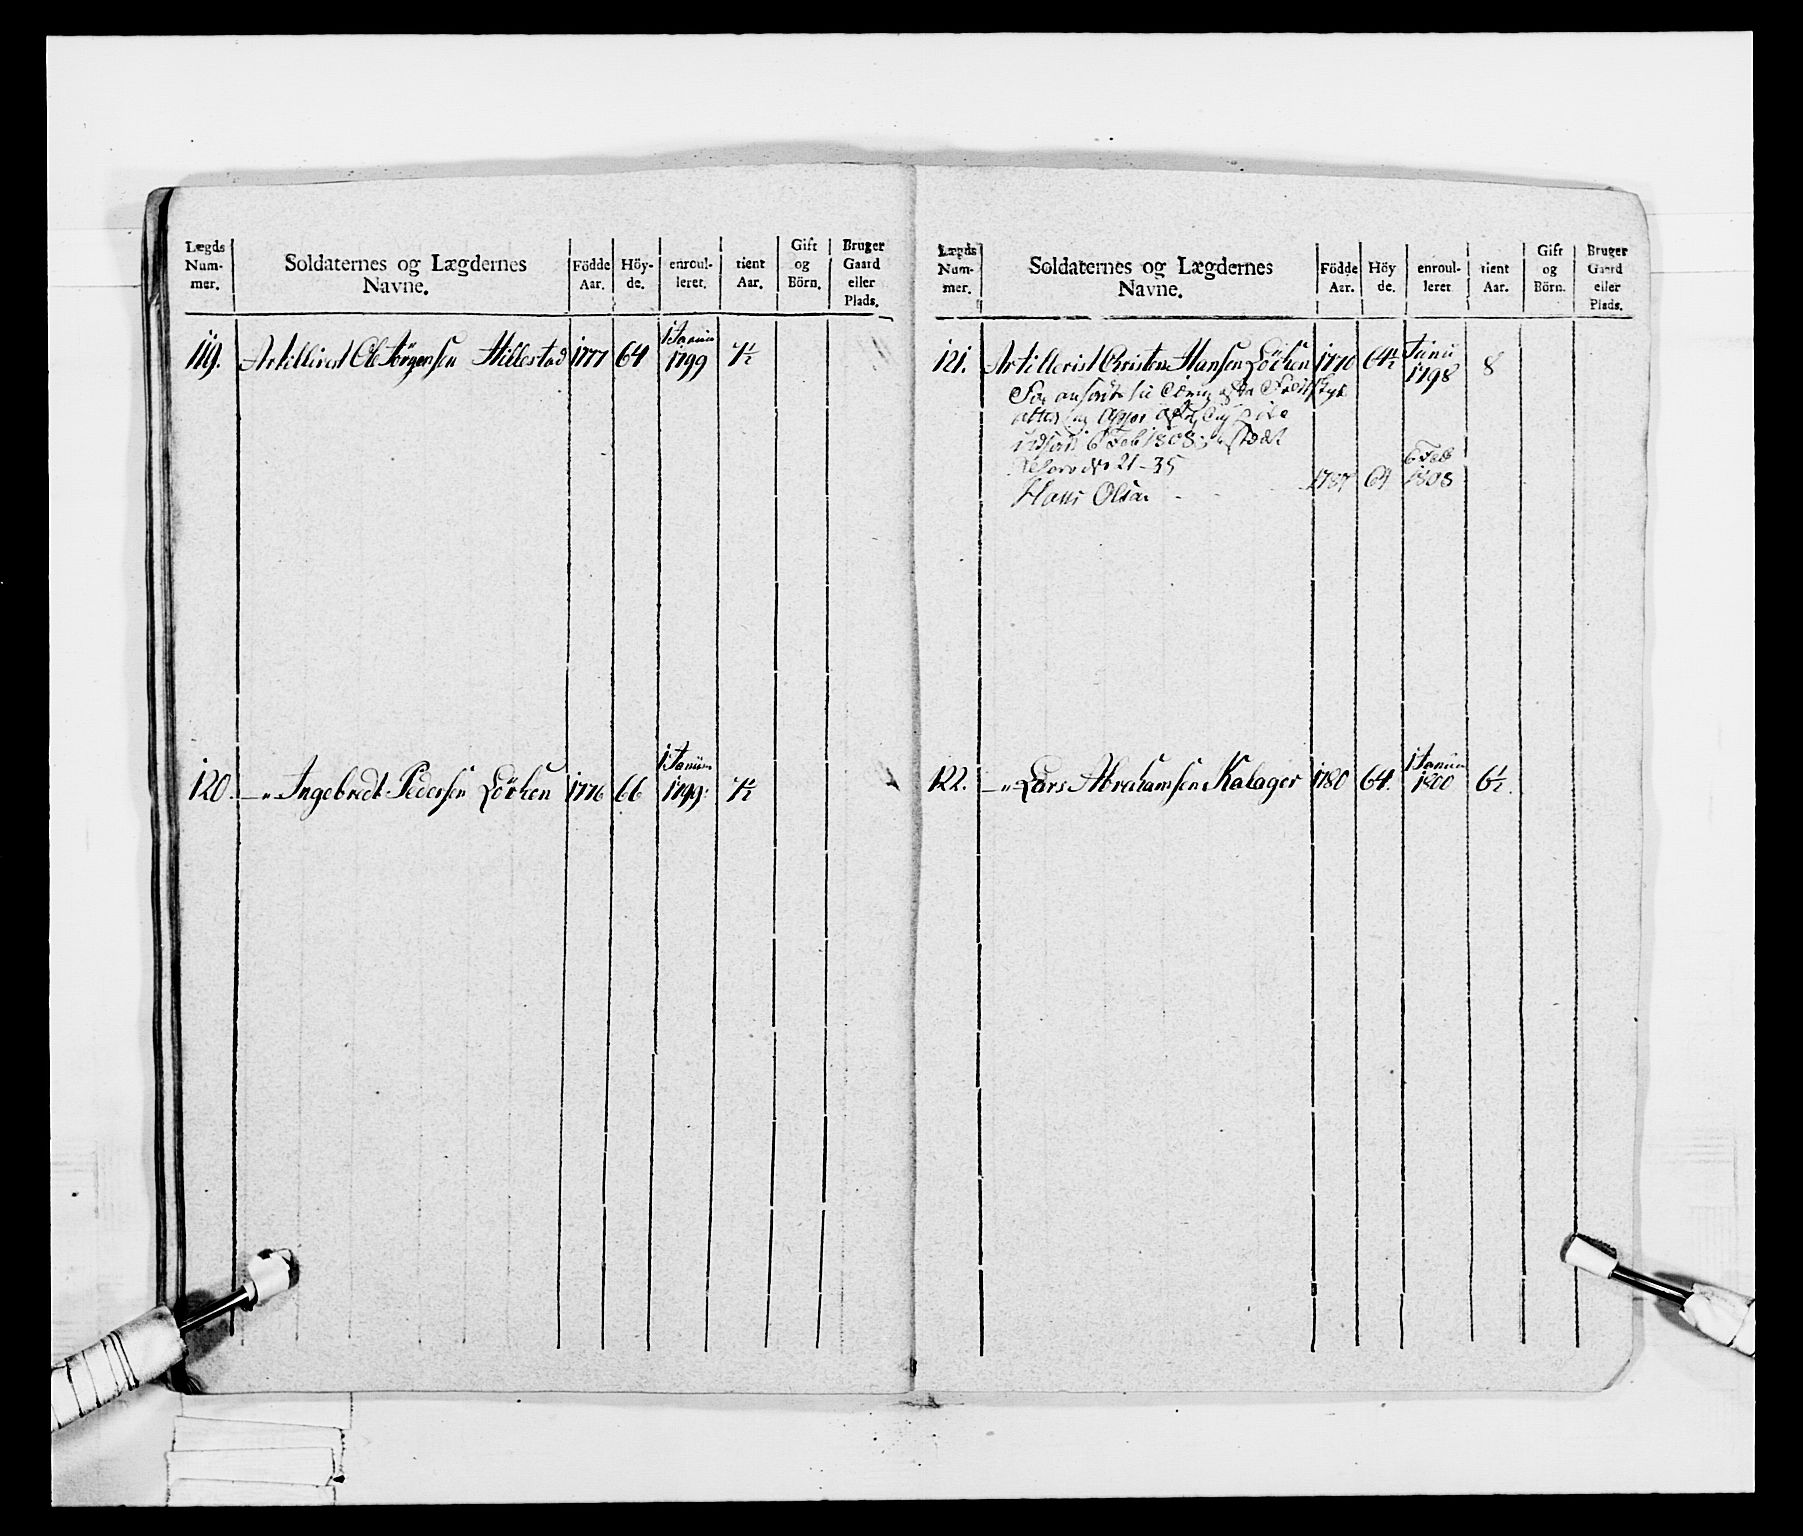 Lægds Num- mer.
Soldaternes og Lægdernes Navne.
Födde Aar.
Höy- de.
enroul- leret.
tient Aar.
Gift og Börn.
Bruger Gaard eller Plads.
119. Artillirist Ole Jörgensen Hillestad 1777 64 1 Janui 1799 7½
120. —„ Ingebredt Pedersen Lörken 1776 66 1 Janui 1799: 7½
Lægds Num- mer.
Soldaternes og Lægdernes Navne.
Födde Aar.
Höy de.
enroul- leret
tient Aar.
Gift og Börn.
Bruger Gaard eller Plads.
121. Artillerist Christen Hansen Lörken 1770 64½ Junii 1798 8
6 Feb 1808
21-35
Hans Olsen 1787 64 6 Feb 1808
122. —„ Lars Abrahamsen Kalager 1780 64. 1 Janui 1800 6½.